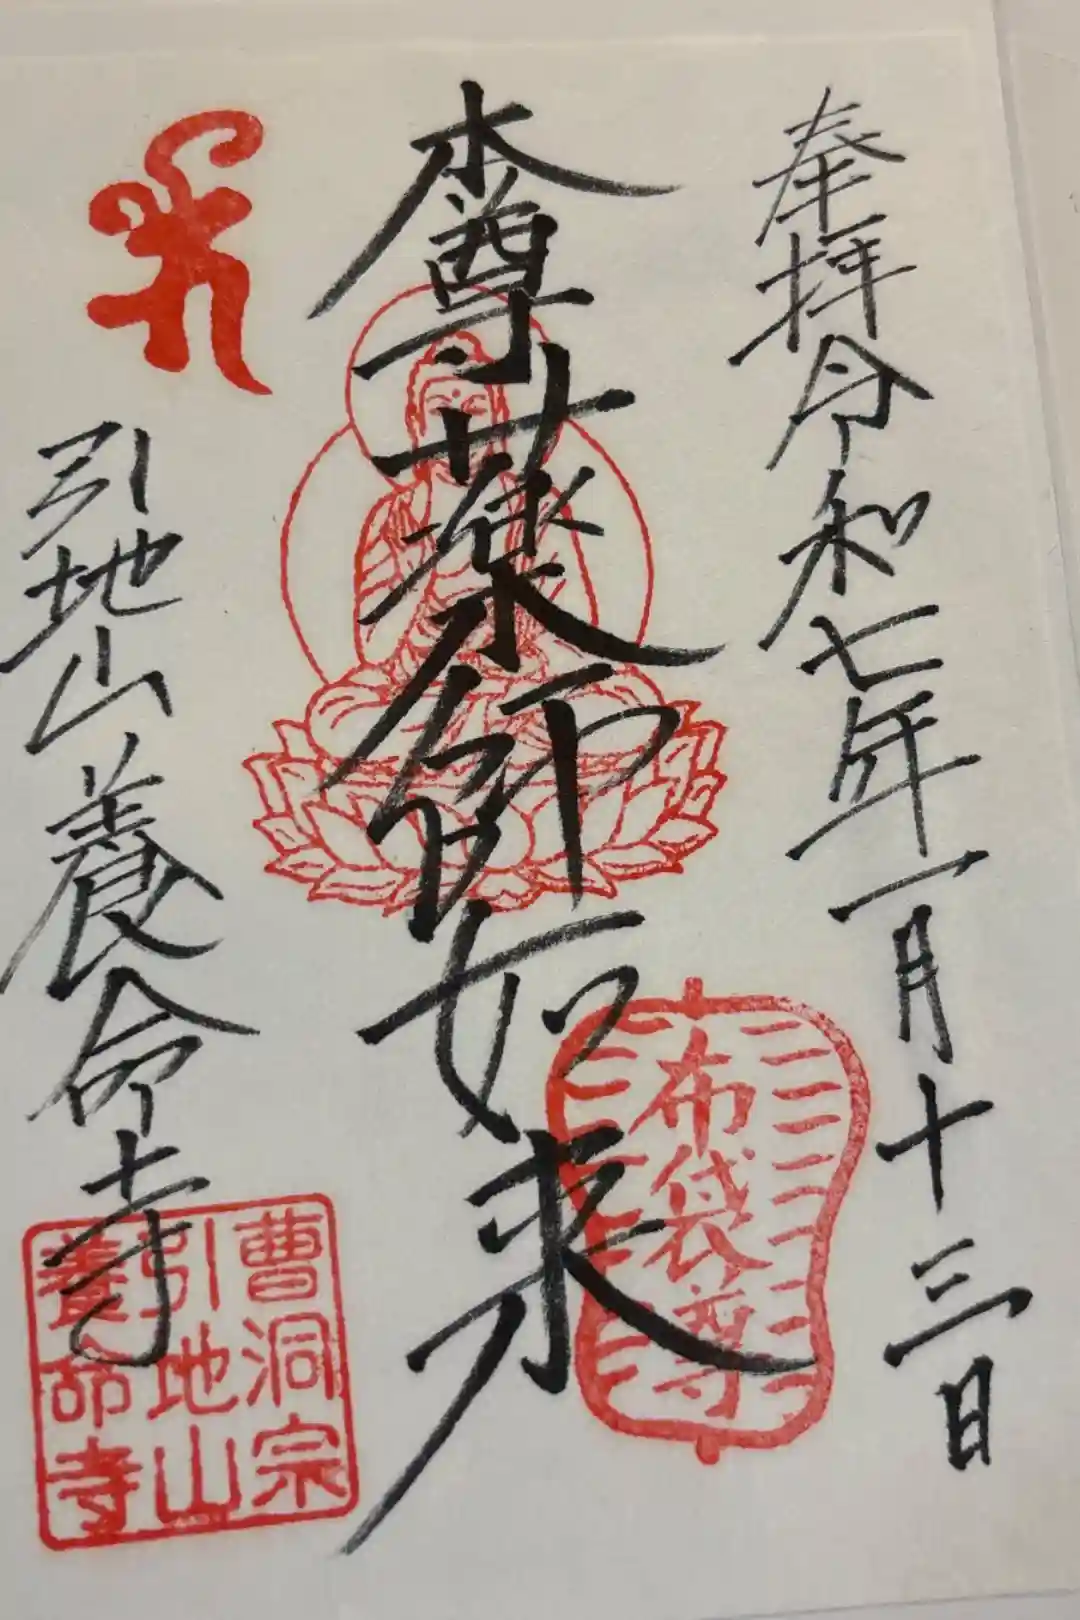 奉拝令和七年一月十三日
本尊薬師如来
布袋尊
引地山養命寺
曹洞宗
引地山
養命寺